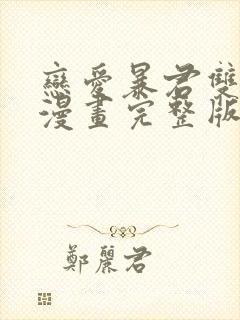 戀愛暴君雙
漫畫完整版
鄭麗君